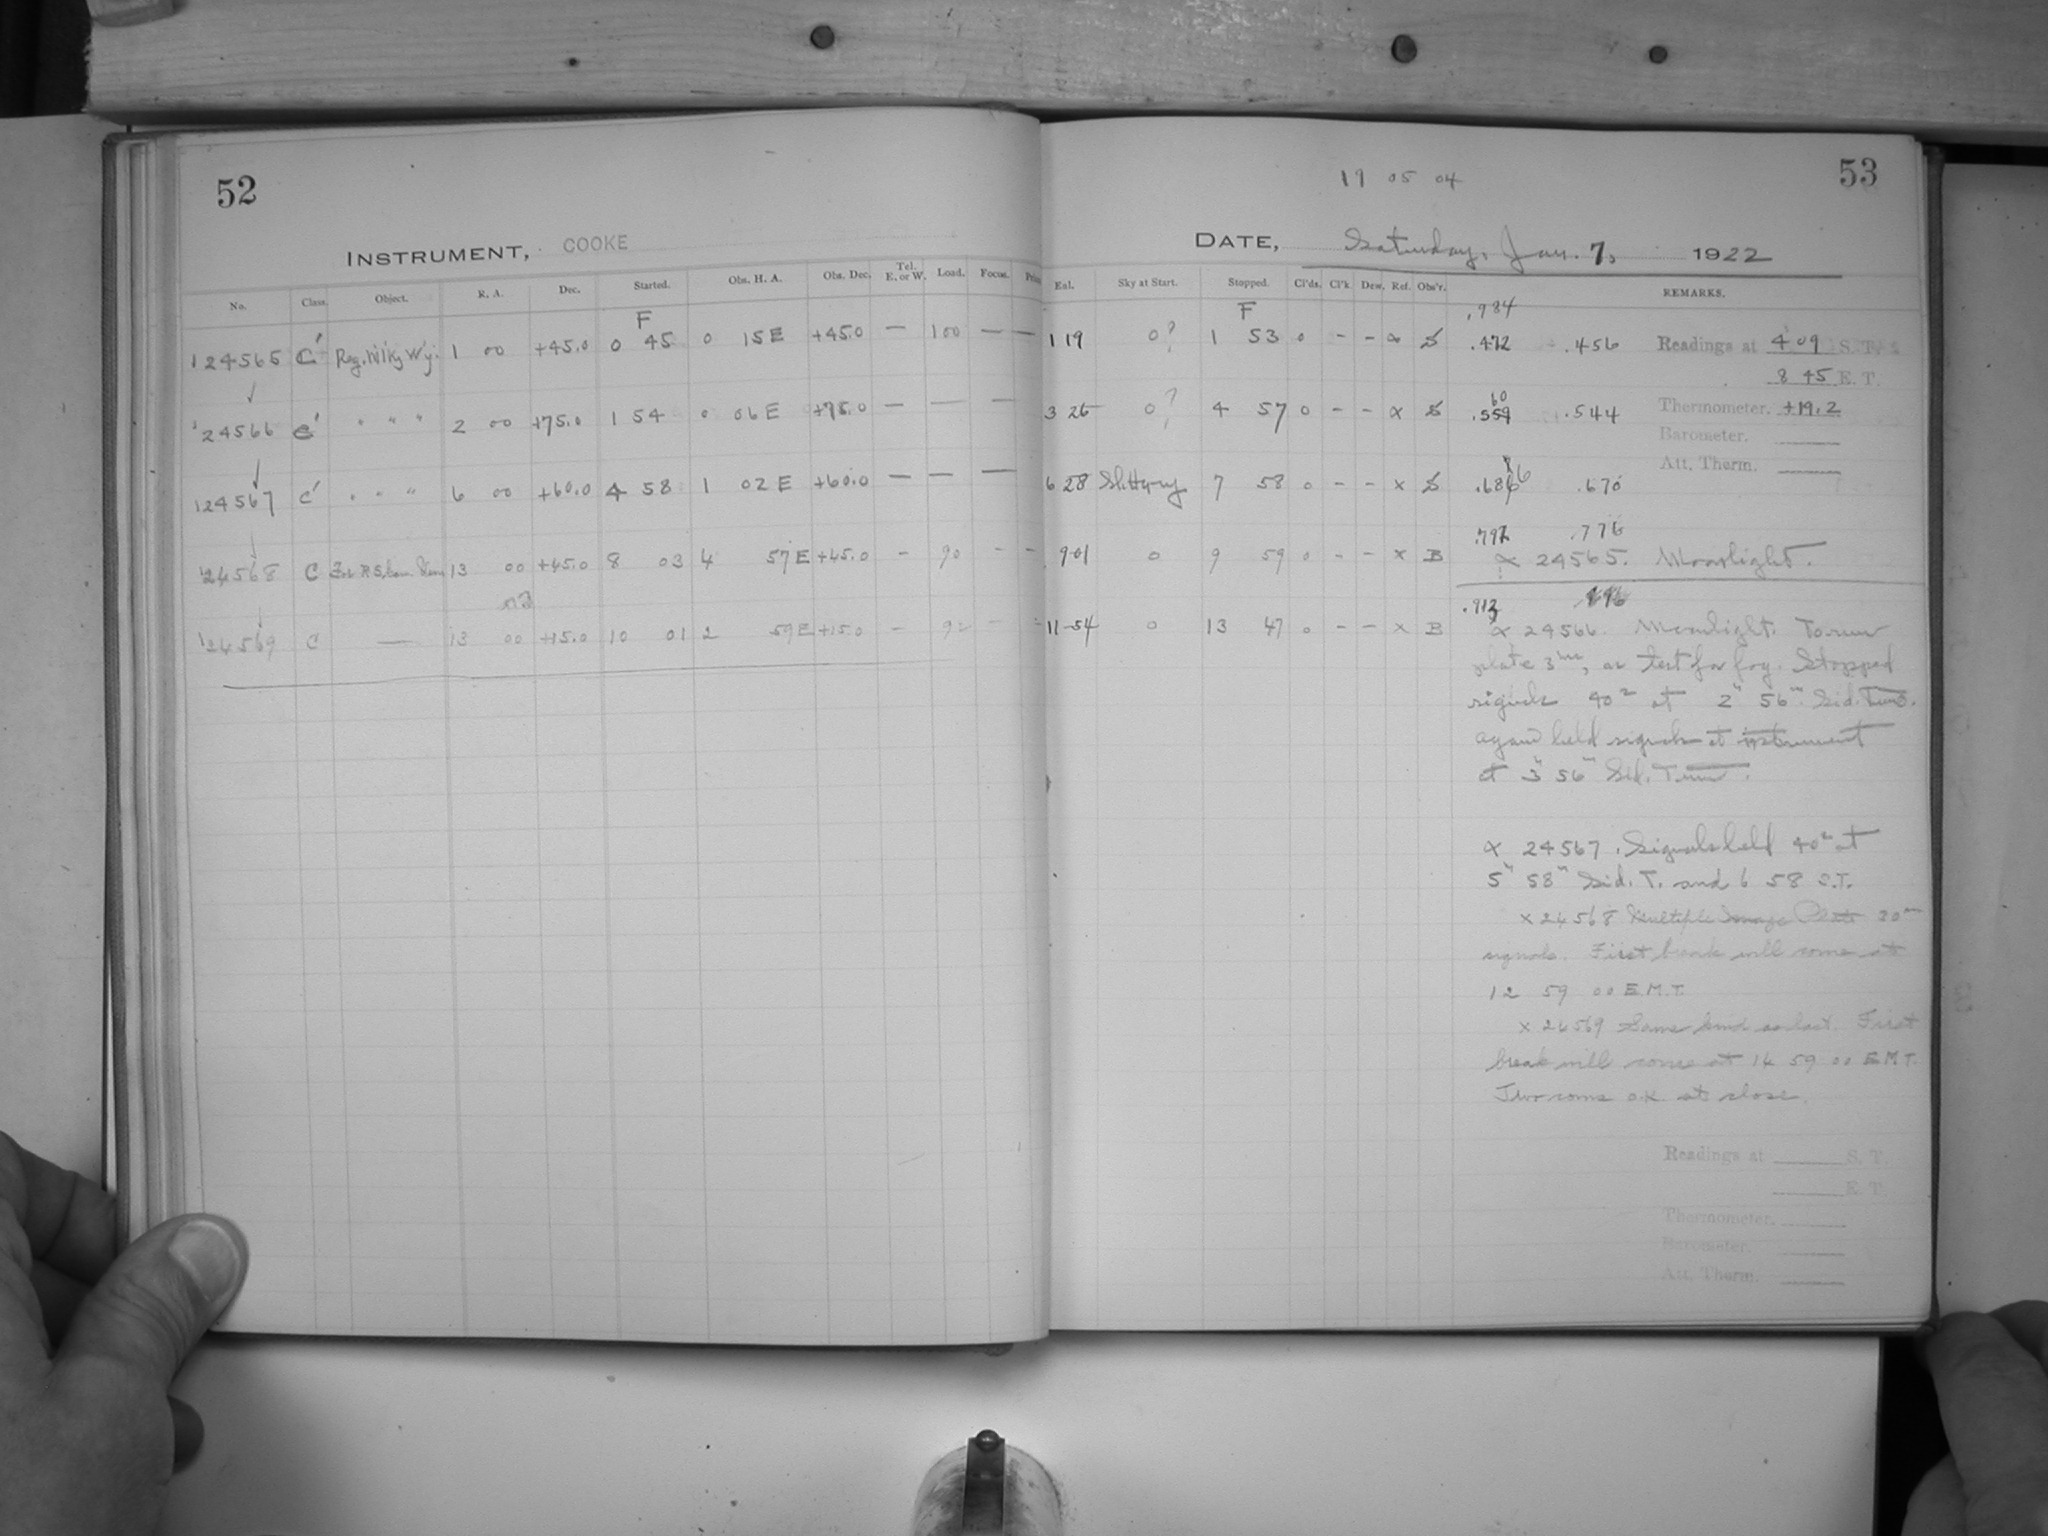 52
INSTRUMENT, COOKE
No. Class. Object. R. A. Dec. Started. Obs. H. A. Obs. Dec. Tel. E. or W. Load. Focus.
F
124565 C' Reg. Milky W'y. 1 00 +45.0 0 45 0 15 E +45.0 — 100 — —
124566 C' " " " 2 00 +75.0 1 54 0 06 E +75.0 — — —
124567 C' " " " 6 00 +60.0 4 58 1 02 E +60.0 — — —
124568 C 13 00 +45.0 8 03 4 57 E +45.0 – 90 – –
124569 C — 13 00 +15.0 10 01 2 59 E +15.0 – – –
19 05 04
53
DATE, Saturday, Jan. 7, 1922
Eal. Sky at Start. Stopped. Cl'ds. Cl'k. Dew. Ref. Obs'r. REMARKS.
F
.984
1 19 0? 1 53 0 – – α S .472 .456 Readings at 4 09 S. T.
8 45 E. T.
3 26 0? 4 57 0 – – α S .544 Thermometer. +19.2
Barometer.
Att. Therm.
6 28 Sl. Hazy 7 58 0 – – x S .670
.776
9.01 0 9 59 0 – – x B α 24565. Moonlight.
11-54 0 13 47 0 – – x B α 24566. Moonlight. To run
plate 3 hrs, as test for fog. Stopped
signals 40 s at 2 h 56 m Sid. Time.
again held signals at instrument
at 3 h 56 m Sid. Time.
α 24567. Signals held 40 s at
5 h 58 m Sid. T. and 6 58 S.T.
x 24568 Multiple Image Plate
signals. First break will come at
12 59 00 E.M.T.
x 24569 Same kind as last. First
break will come at 14 59 00 E.M.T.
O.K. at close.
Readings at S. T.
E. T.
Thermometer.
Barometer.
Att. Therm.